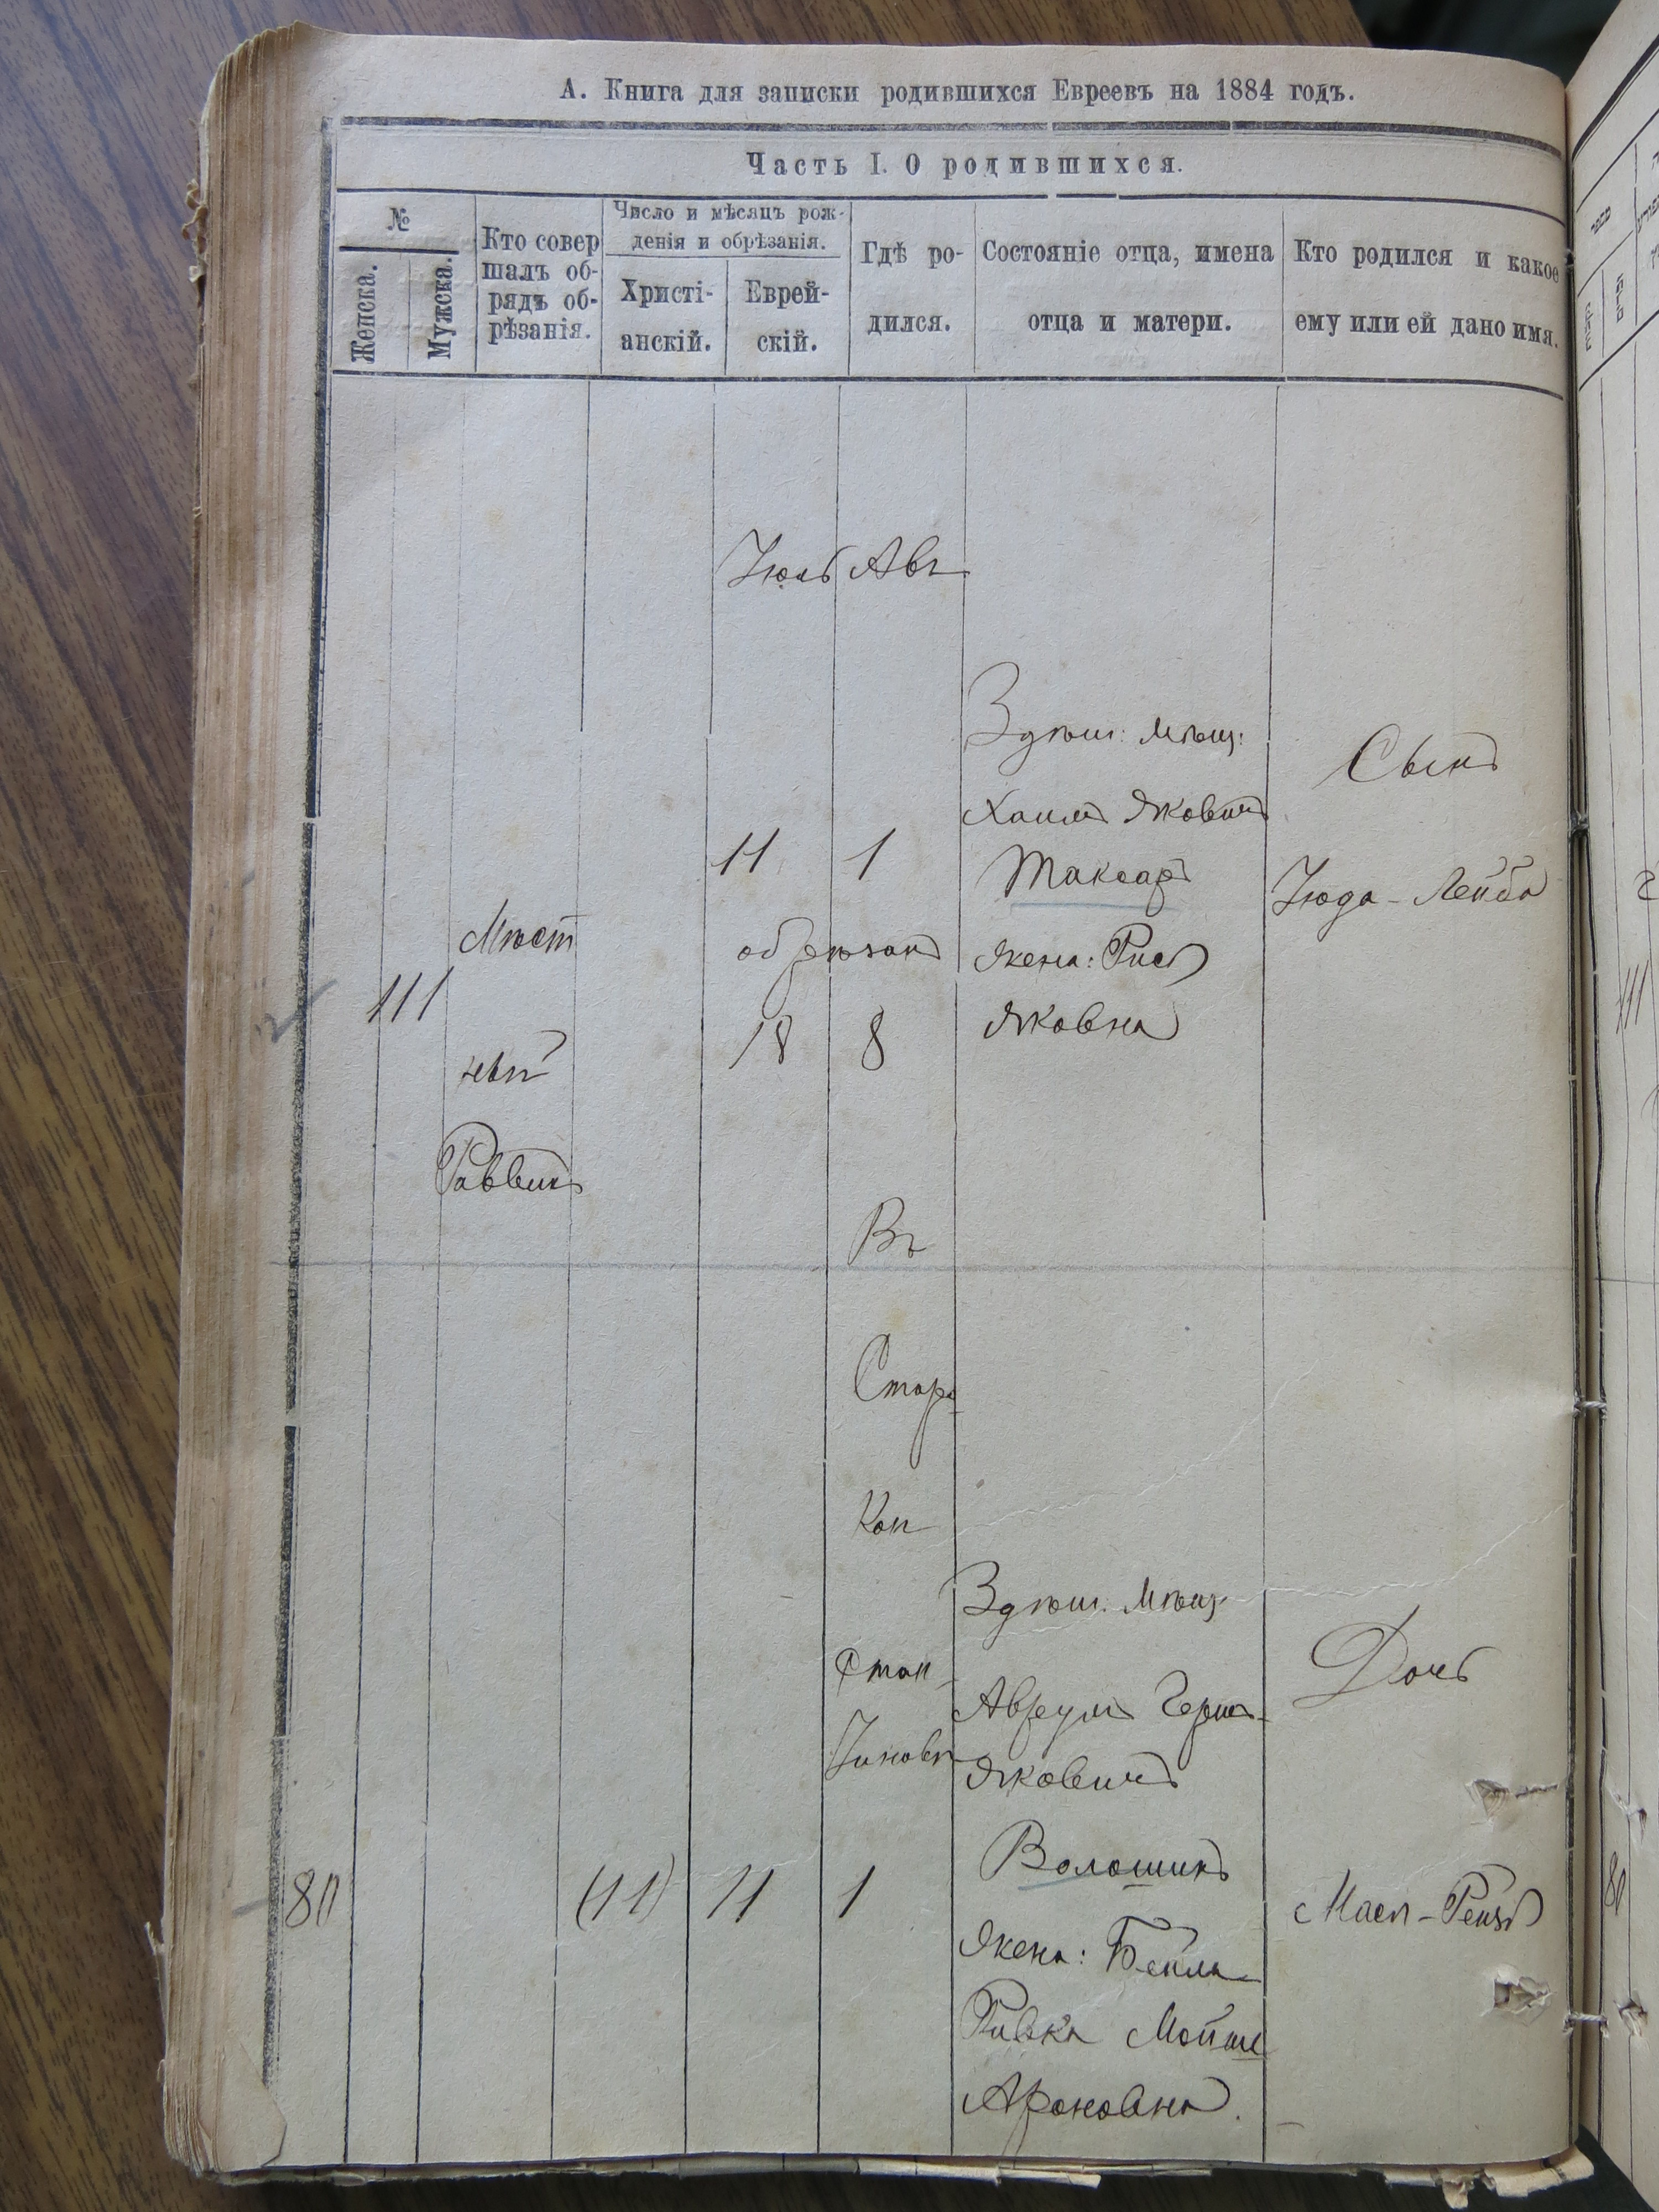 А. Книга для записки родившихся Евреевъ на 1884 годъ.
Часть I. О родившихся.
№
Женска.
Мужска.
Кто совер
шалъ об-
рядъ об-
рѣзанія.
Число и мѣсяцъ рож-
денія и обрѣзанія.
Христі-
анскій.
Еврей-
скій.
Гдѣ ро-
дился.
Состояніе отца, имена
отца и матери.
Кто родился и какое
ему или ей дано имя.
Іюль Авъ
111
Мѣст
ный
Раввинъ
11 1
обрѣзанъ
18 8
Здѣш: мѣщ:
Хаимъ Яковичъ
Таксаръ
жена: Рися
Яковна
Сынъ
Іюда-Лейба
Въ
Старо
Кон
стан
тиновѣ
80
(11) 11 1
Здѣш. Мѣщ.
Аврумъ Герш-
Яковичъ
Волошинъ
жена: Бейла
Ривка Мойше
Ароновна.
Дочь
80
111